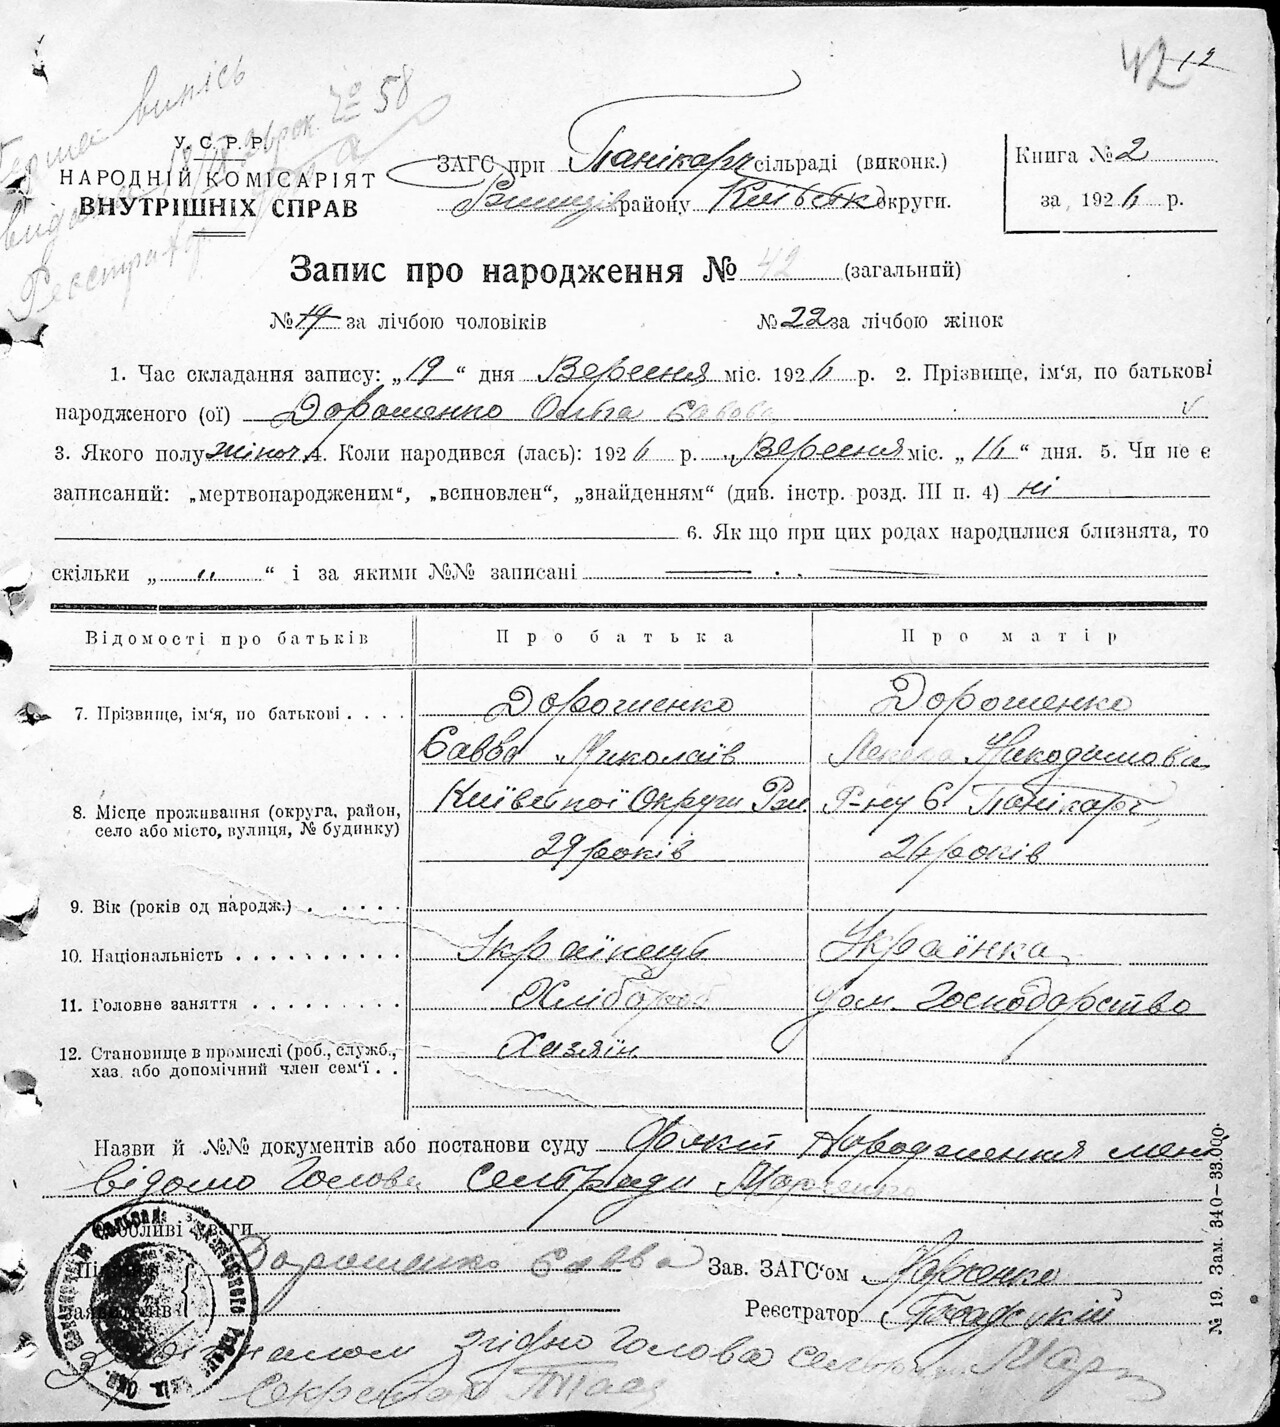 42 12
Перша випись
№ 58
У.С.Р.Р.
НАРОДНІЙ КОМІСАРІЯТ
ВНУТРІШНІХ СПРАВ
Реєстратор
ЗАГС при Панікарч сільраді (виконк.)
Ржищів району Київськ округи.
Книга № 2
за 1926 р.
Запис про народження № 42 (загальний)
№ 19 за лічбою чоловіків № 22 за лічбою жінок
1. Час складання запису: „19“ дня Вересня міс. 1926 р. 2. Прізвище, ім'я, по батькові
народженого (ої) Дорошенко Ольга Савова
3. Якого полу жіноч. 4. Коли народився (лась): 1926 р. „Вересня міс. „16“ дня. 5. Чи не є
записаний: „мертвонародженим“, „вспновлен“, „знайденням“ (див. інстр. розд. III п. 4) ні
6. Як що при цих родах народилися близнята, то
скільки „ “ і за якими №№ записані
Відомості про батьків Про батька Про матір
7. Прізвище, ім'я, по батькові Дорошенко Дорошенко
Савва Миколаїв Никодимовна
8. Місце проживання (округа, район,
село або місто, вулиця, № будинку) Київської Округи Рж. Р-ну с. Панікарч
29 років 26 років
9. Вік (років од народж.)
10. Національність Українець Українка
11. Головне заняття Хлібороб дом. Господарство
12. Становище в промислі (роб., служб.,
хаз. або допомічний член сем'ї Хазяїн
Назви й №№ документів або постанови суду Факт Народження мені
відомо Голова сельради Марченко
Особливі уваги
Підписи
заявителів Дорошенко Савва
Зав. ЗАГС'ом Марченко
Реєстратор
З оригіналом згідно Голова сельради Мар
Секретар
№ 19. Зам. 340–33.000.